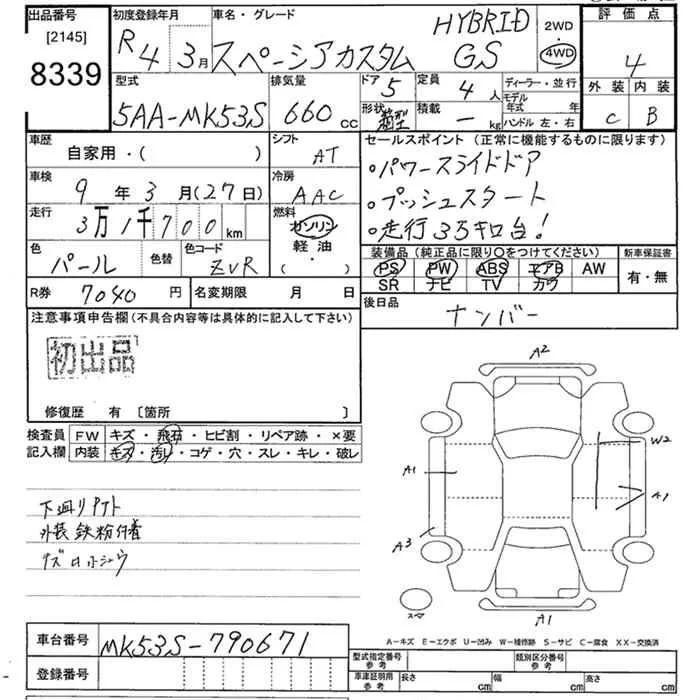 出品番号 初度登録年月 車名・グレード HYBRID 2WD 評価点
[2145] R4 3月 スペーシアカスタム GS 4WD 4
8339
型式 排気量 ドア 5 定員 4人 ディーラー・並行 外装 内装
5AA-MK53S 660cc 形状 箱型 積載 - kg モデル年式 年 ハンドル 左・右 C B
車歴 シフト セールスポイント (正常に機能するものに限ります)
自家用・( ) AT ・パワースライドドア
車検 冷房 ・プッシュスタート
9年3月(27日) AAC ・走行33キロ台!
走行 燃料
3万1千700km ガソリン 装備品(純正品に限り○をつけてください) 新車保証書
色 色替 色コード 軽油 PS PW ABS エアB AW 有・無
パール ZVR ・( ) SR ナビ TV カワ
R券 7040円 名変期限 月 日 後日品
注意事項申告欄(不具合内容等は具体的に記入して下さい) ナンバー
初出品
修復歴 有 〔箇所 〕
検査員 FW キズ・飛石・ヒビ割・リペア跡・×要
記入欄 内装 キズ・汚レ・コゲ・穴・スレ・キレ・破レ
A2
W2
A1
A1
A3
A1
スマ
下廻リ
外装鉄粉付着
A-キズ E-エクボ U-凹み W-補修跡 S-サビ C-腐食 XX-交換済
車台番号 MK53S-790671
登録番号
型式指定番号 参考 類別区分番号 参考
車庫証明用 参考 長さ cm 幅 cm 高さ cm